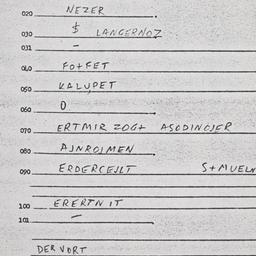 020 NEZER
030 $ LANGERNOZ
031 -
040 FOTFET
050 KALUPET
060 0
070 ERTMIR ZOGT ASODINOJER
080 AJNROJMEN
090 ERDERCEJLT STMUELN
100 ERERTNIT
101 -
DER VORT